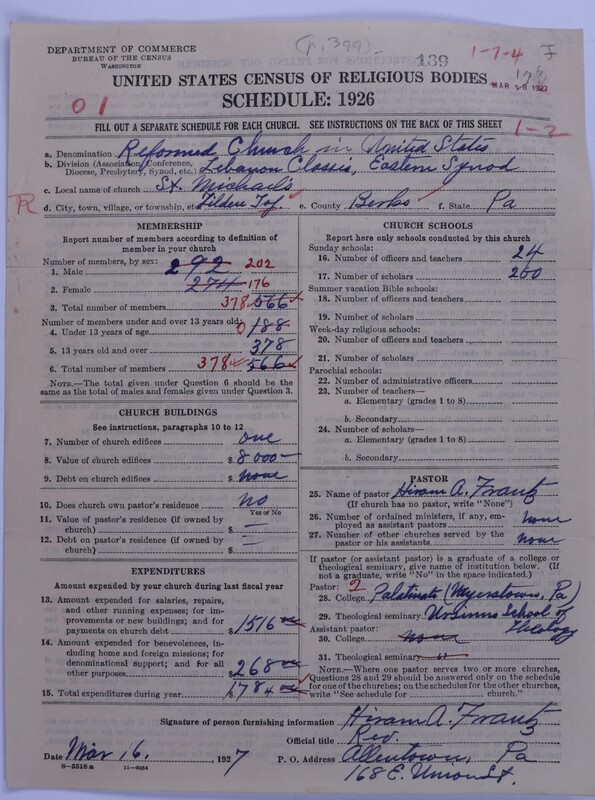 (p. 399)
139
1-7-4
DEPARTMENT OF COMMERCE
BUREAU OF THE CENSUS
WASHINGTON
MAR 18 1927
UNITED STATES CENSUS OF RELIGIOUS BODIES
SCHEDULE: 1926
0 1
FILL OUT A SEPARATE SCHEDULE FOR EACH CHURCH. SEE INSTRUCTIONS ON THE BACK OF THIS SHEET
1-2
a. Denomination Reformed Church in United States
b. Division (Association, Conference, Diocese, Presbytery, Synod, etc.) Lebanon Classis, Eastern Synod
c. Local name of church St. Michael's
R
d. City, town, village, or township, etc. Tilden Twp. e. County Berks f. State Pa
MEMBERSHIP
Report number of members according to definition of
member in your church
Number of members, by sex:
1. Male 292 202
2. Female 274 176
3. Total number of members 378 566
Number of members under and over 13 years old:
4. Under 13 years of age 0 188
5. 13 years old and over 378
6. Total number of members 378 566
NOTE.—The total given under Question 6 should be
the same as the total of males and females given under Question 3.
CHURCH BUILDINGS
See instructions, paragraphs 10 to 12
7. Number of church edifices one
8. Value of church edifices $ 8000—
9. Debt on church edifices $ none
10. Does church own pastor's residence? no
Yes or No
11. Value of pastor's residence (if owned by
church) $ —
12. Debt on pastor's residence (if owned by
church) $ —
EXPENDITURES
Amount expended by your church during last fiscal year
13. Amount expended for salaries, repairs,
and other running expenses; for im-
provements or new buildings; and for
payments on church debt $ 1516 00
14. Amount expended for benevolences, in-
cluding home and foreign missions; for
denominational support; and for all
other purposes $ 268 00
15. Total expenditures during year $ 1784 00
CHURCH SCHOOLS
Report here only schools conducted by this church
Sunday schools:
16. Number of officers and teachers 24
17. Number of scholars 260
Summer vacation Bible schools:
18. Number of officers and teachers
19. Number of scholars
Week-day religious schools:
20. Number of officers and teachers
21. Number of scholars
Parochial schools:
22. Number of administrative officers
23. Number of teachers—
a. Elementary (grades 1 to 8)
b. Secondary
24. Number of scholars—
a. Elementary (grades 1 to 8)
b. Secondary
PASTOR
25. Name of pastor Hiram A. Frantz
(If church has no pastor, write "None")
26. Number of ordained ministers, if any, em-
ployed as assistant pastors none
27. Number of other churches served by the
pastor or his assistants none
If pastor (or assistant pastor) is a graduate of a college or
theological seminary, give name of institution below. (If
not a graduate, write "No" in the space indicated.)
Pastor: 2
28. College Palatinate (Myerstown, Pa)
29. Theological seminary Ursinus School of Theology
Assistant pastor:
30. College none
31. Theological seminary "
NOTE.—Where one pastor serves two or more churches,
Questions 28 and 29 should be answered only on the schedule
for one of the churches; on the schedules for the other churches,
write "See schedule for church."
Signature of person furnishing information Hiram A. Frantz
Official title Rev.
Date Mar 16, 1927 P. O. Address Allentown, Pa
8—5518 a
168 E. Union St.